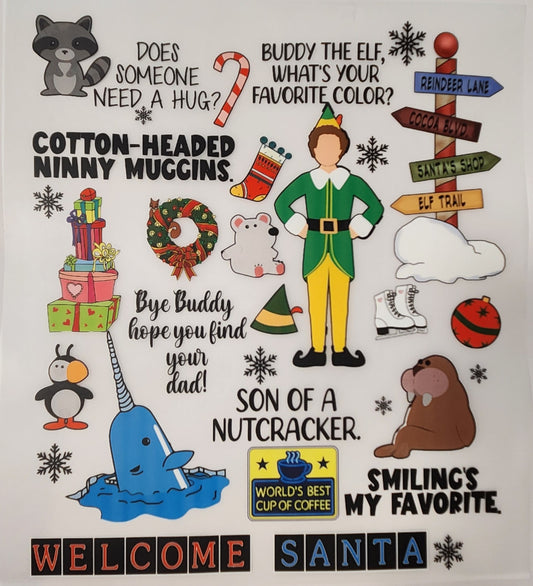 DOES
SOMEONE
NEED A HUG?
BUDDY THE ELF,
WHAT'S YOUR
FAVORITE COLOR?
REINDEER LANE
COCOA BLVD.
SANTA'S SHOP
ELF TRAIL
COTTON-HEADED
NINNY MUGGINS.
Bye Buddy
hope you find
your
dad!
SON OF A
NUTCRACKER.
WORLD'S BEST
CUP OF COFFEE
SMILING'S
MY FAVORITE.
WELCOME SANTA